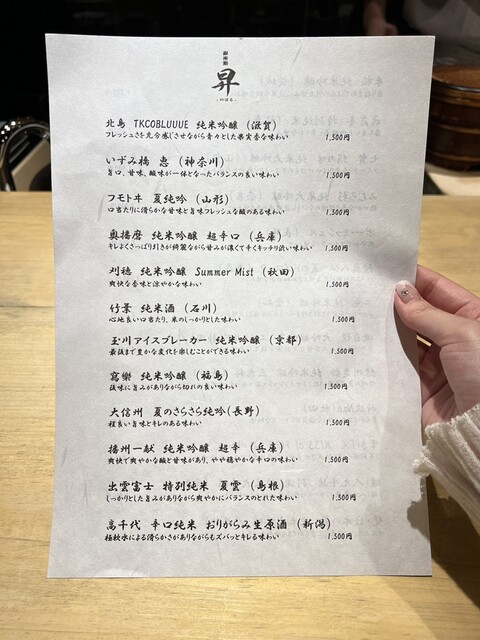 昇
-のぼる-
北島 TKCOBLUUUE 純米吟醸 (滋賀)
フレッシュさを充分感じさせながら青々とした果実香な味わい 1,500円
いづみ橋 恵 (神奈川)
旨口、甘味、酸味が一体となったバランスの良い味わい 1,500円
フモトヰ 夏純吟 (山形)
口当たりに滑らかな甘味と旨味フレッシュな酸のある味わい 1,500円
奥播磨 純米吟醸 超辛口 (兵庫)
キレよくさっぱり引きが綺麗ながら甘みが薄くて辛くキッチリ渋い味わい 1,500円
刈穂 純米吟醸 Summer Mist (秋田)
爽快な香味と涼やかな味わい 1,500円
竹葉 純米酒 (石川)
心地良い口当たり、米のしっかりとした味わい 1,500円
玉川アイスブレーカー 純米吟醸 (京都)
最後まで豊かな変化を楽しむことができる味わい 1,500円
寫樂 純米吟醸 (福島)
後味に旨みがありながら切れの良い味わい 1,500円
大信州 夏のさらさら純吟(長野)
程良い旨味とキレのある味わい 1,500円
播州一献 純米吟醸 超辛 (兵庫)
爽快で爽やかな酸と甘味があり、やや穏やかな辛口の味わい 1,500円
出雲富士 特別純米 夏雲 (島根)
しっかりとした旨みがありながら爽やかにバランスのとれた味わい 1,500円
高千代 辛口純米 おりがらみ生原酒 (新潟)
極軟水による滑らかさがありながらもズバッとキレる味わい 1,500円